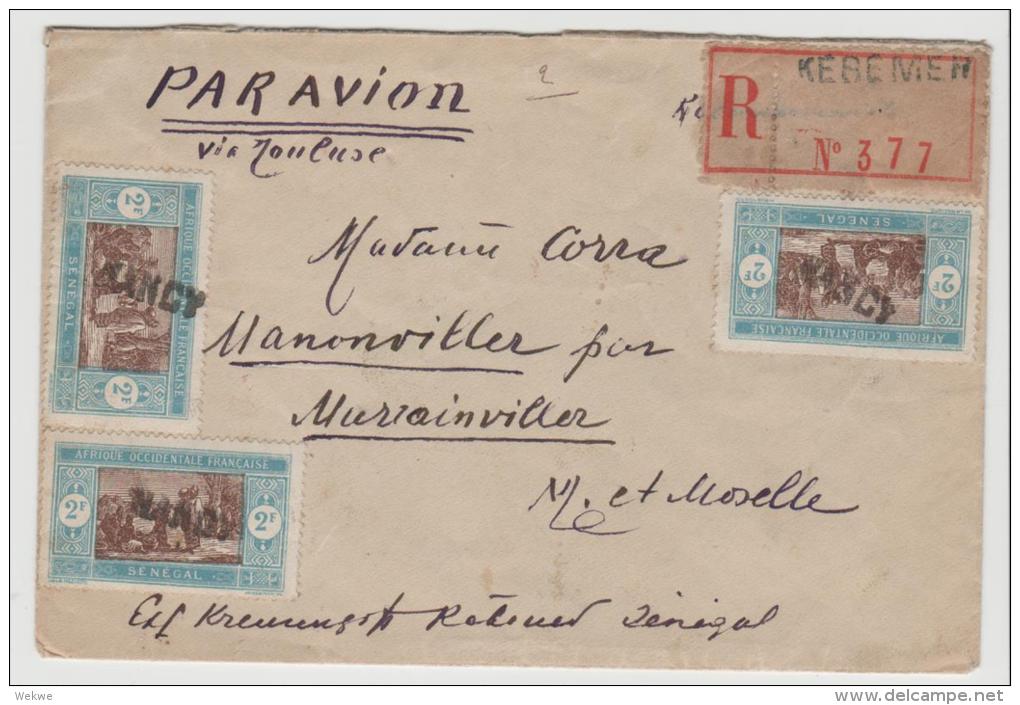 PAR AVION
via Touluse
KEBEMER
R
N° 377
2F
AFRIQUE OCCIDENTALE FRANÇAISE
SENEGAL
2F
NANCY
2F
AFRIQUE OCCIDENTALE FRANÇAISE
SENEGAL
2F
NANCY
Madame Corra
Manonviller par
Marrainviller
M. et Moselle
AFRIQUE OCCIDENTALE FRANÇAISE
2F
2F
SENEGAL
NANCY
Exf Sénégal
Wekwe
www.delcampe.net